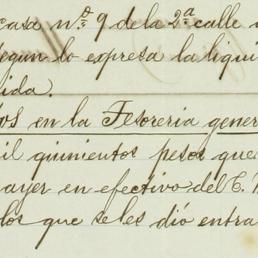 casa nº 9 de la 2ª calle
segun lo expresa la liqui
ida.
os en la Tesoreria gener
il quinientos pesos que
ayer en efectivo del C.
los que se les dió entra